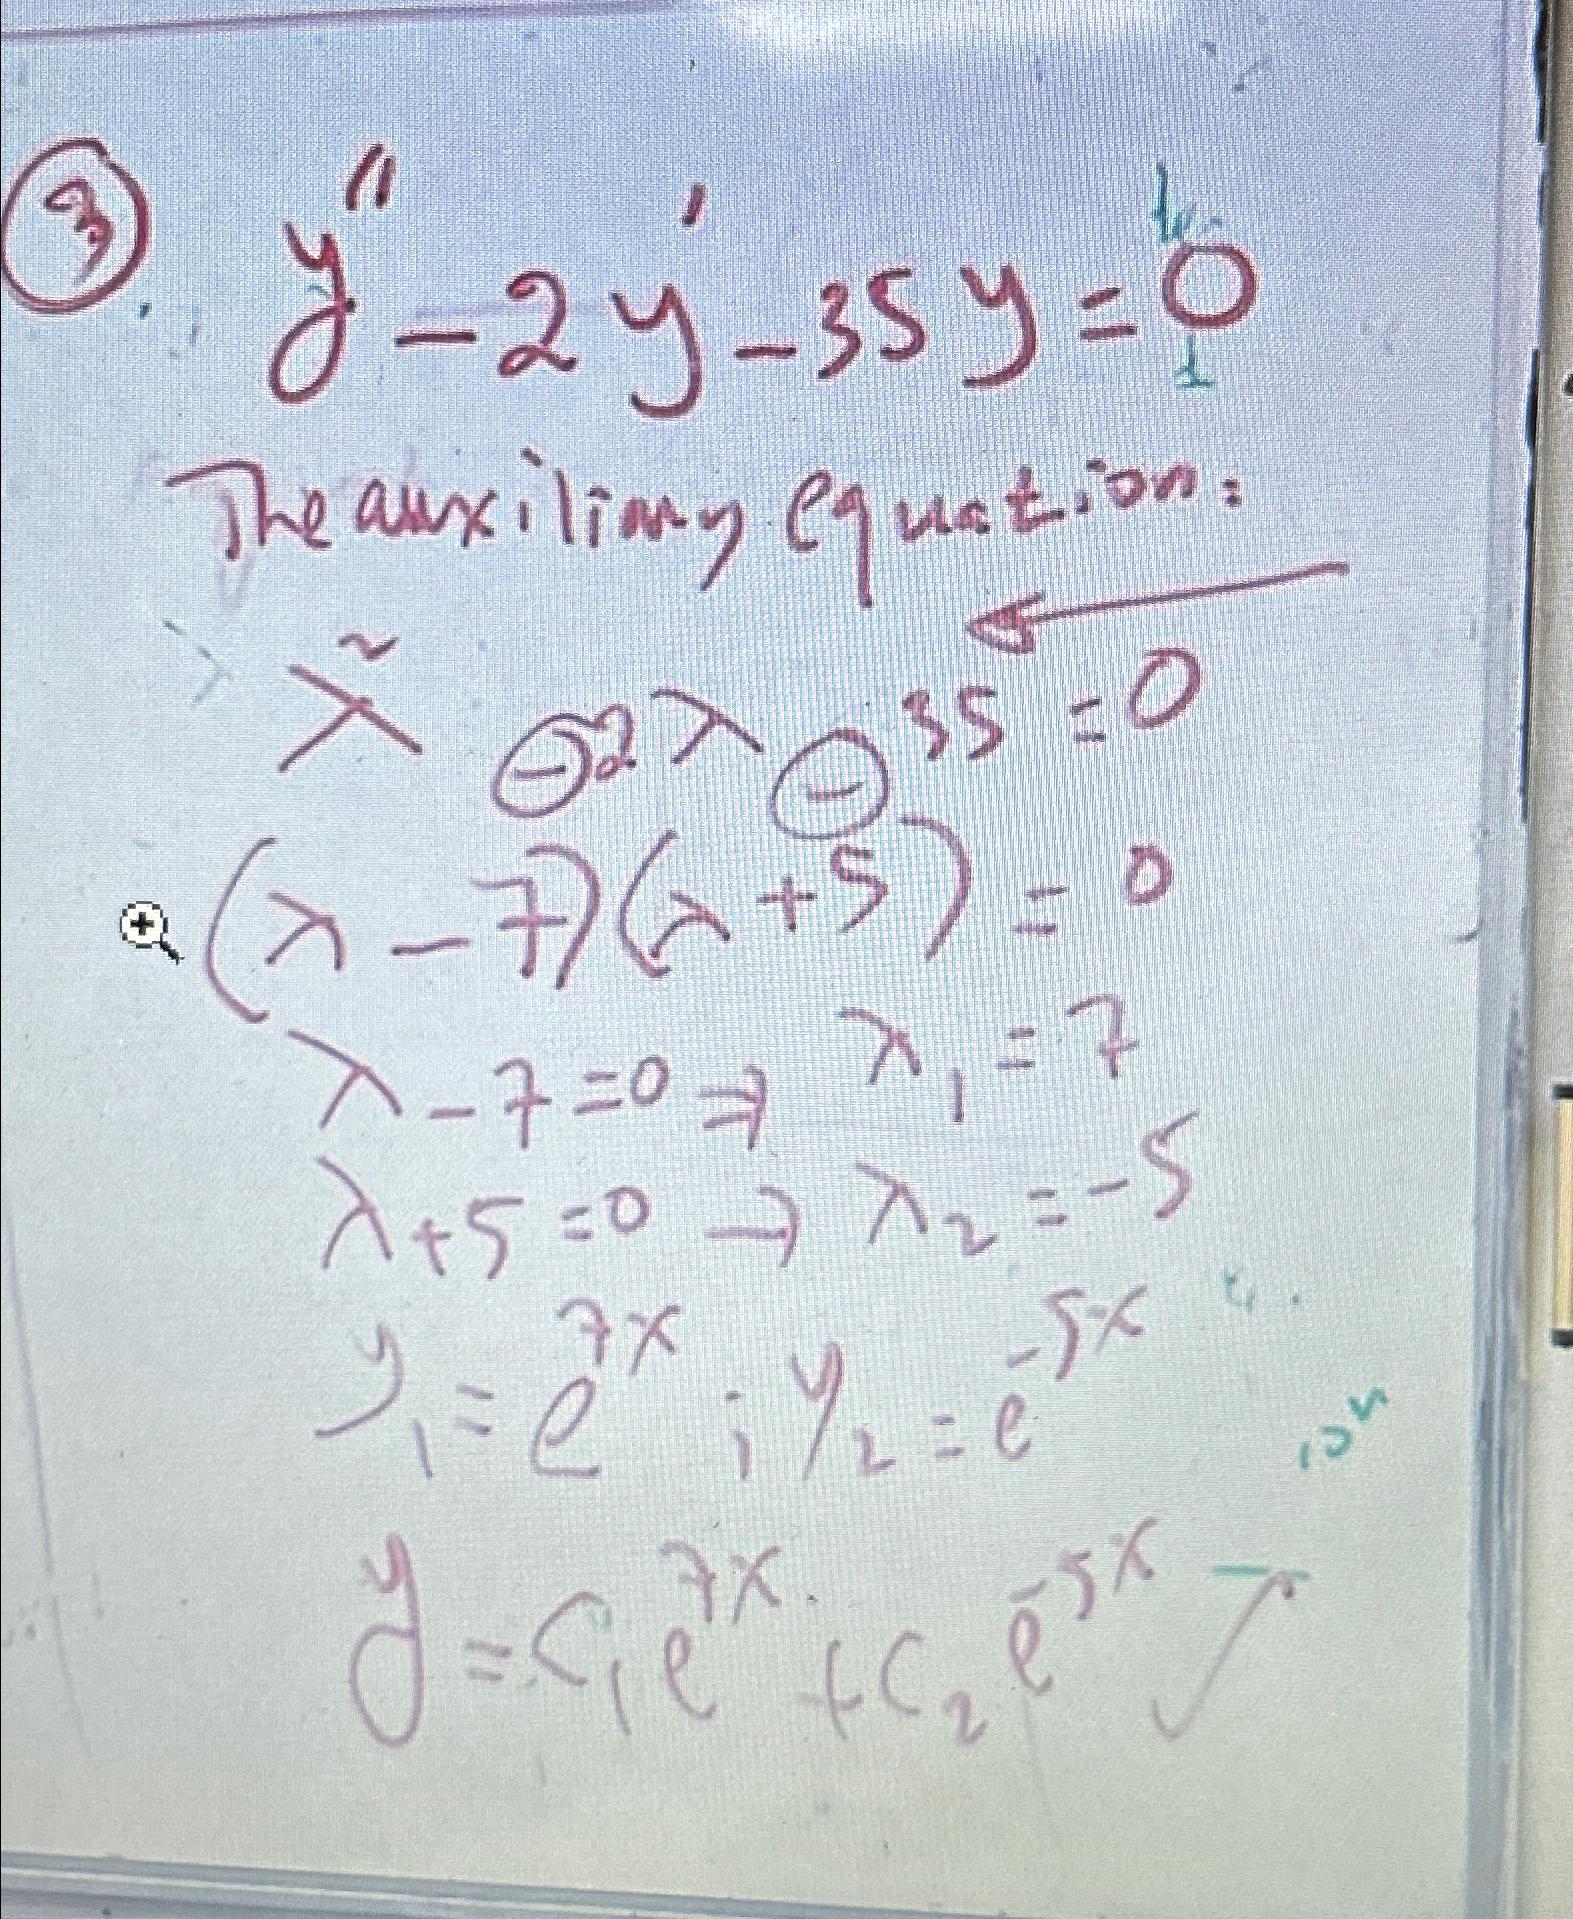 ③ y'' - 2y' - 35y = 0
The auxiliary equation:
λ² - 2λ - 35 = 0
(λ - 7)(λ + 5) = 0
λ - 7 = 0 ⇒ λ₁ = 7
λ + 5 = 0 → λ₂ = -5
y₁ = e^7x ; y₂ = e^-5x
y = c₁e^7x + c₂e^-5x